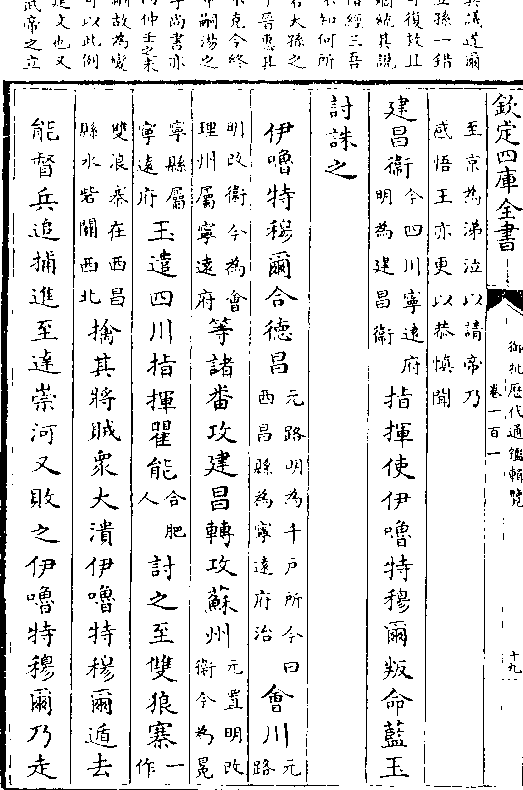 立孫一錯
可復致且
借經三吾
不知何所
下晉惠其
可以此例
建文也又
武帝之立
欽定四庫全書
御批歷代通鑑輯覽
卷一百一
十九
至京為涕泣以請帝乃
感悟王亦更以恭慎聞
建昌衛今四川寧遠府明為建昌衛指揮使伊嚕特穆爾叛命藍玉
討誅之
伊嚕特穆爾合德昌元路明為千戶所今曰西昌縣為寧遠府治會川元路
明改衛今為會理州屬寧遠府等諸番攻建昌轉攻蘇州元置明改衛今為冕
寧縣屬寧遠府玉遣四川指揮瞿能合肥人討之至雙狼寨一作
雙浪寨在西昌縣水砦關西北擒其將賊衆大潰伊嚕特穆爾遁去
能督兵追捕進至達崇河又敗之伊嚕特穆爾乃走